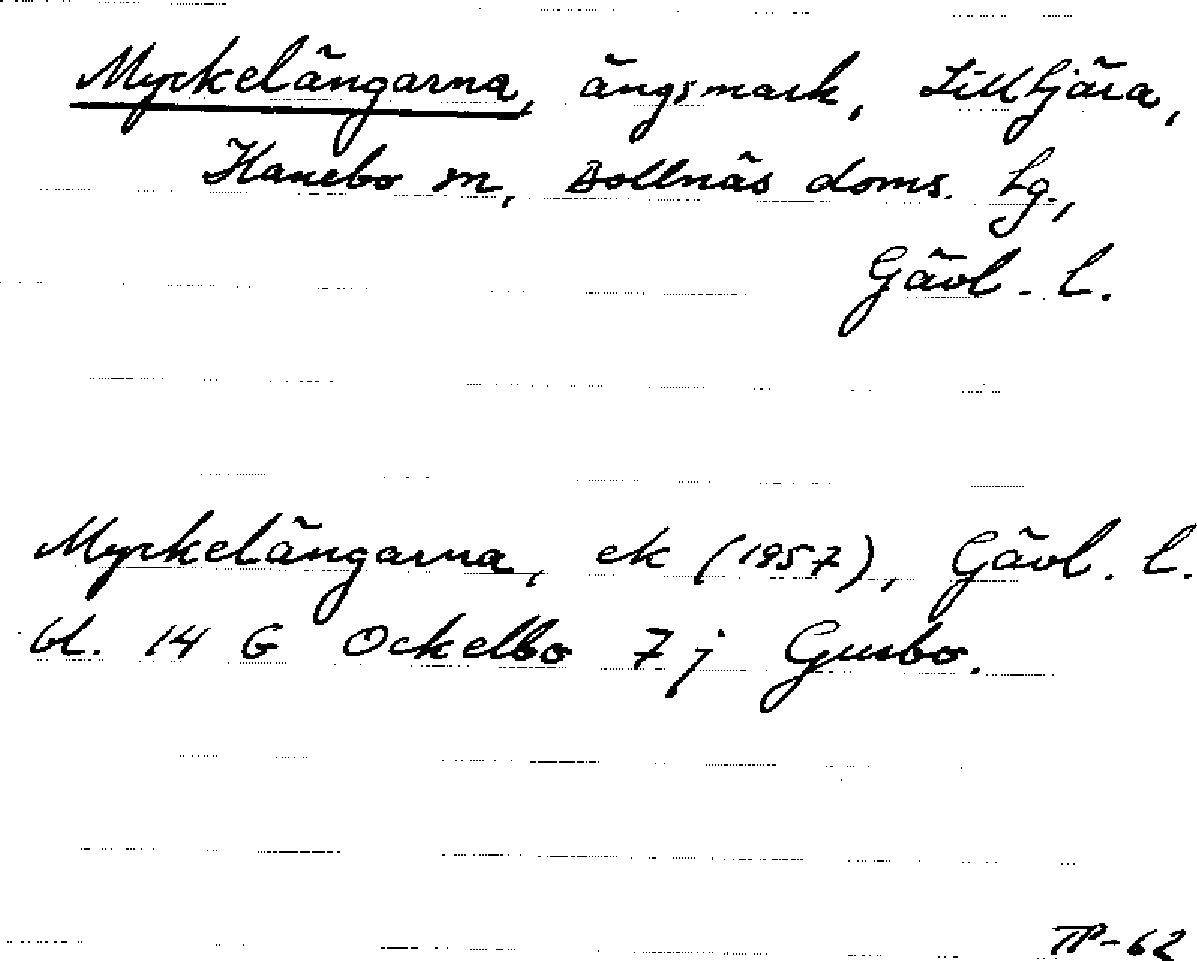 Myckelängarna, ängsmark, Lilltjära,
Hanebo sn, Bollnäs doms. tg.,
Gävl. l.
Myckelängarna, ek (1957), Gävl. l.
bl. 14 G Ockelbo 7 j Gusbo.
TP-62